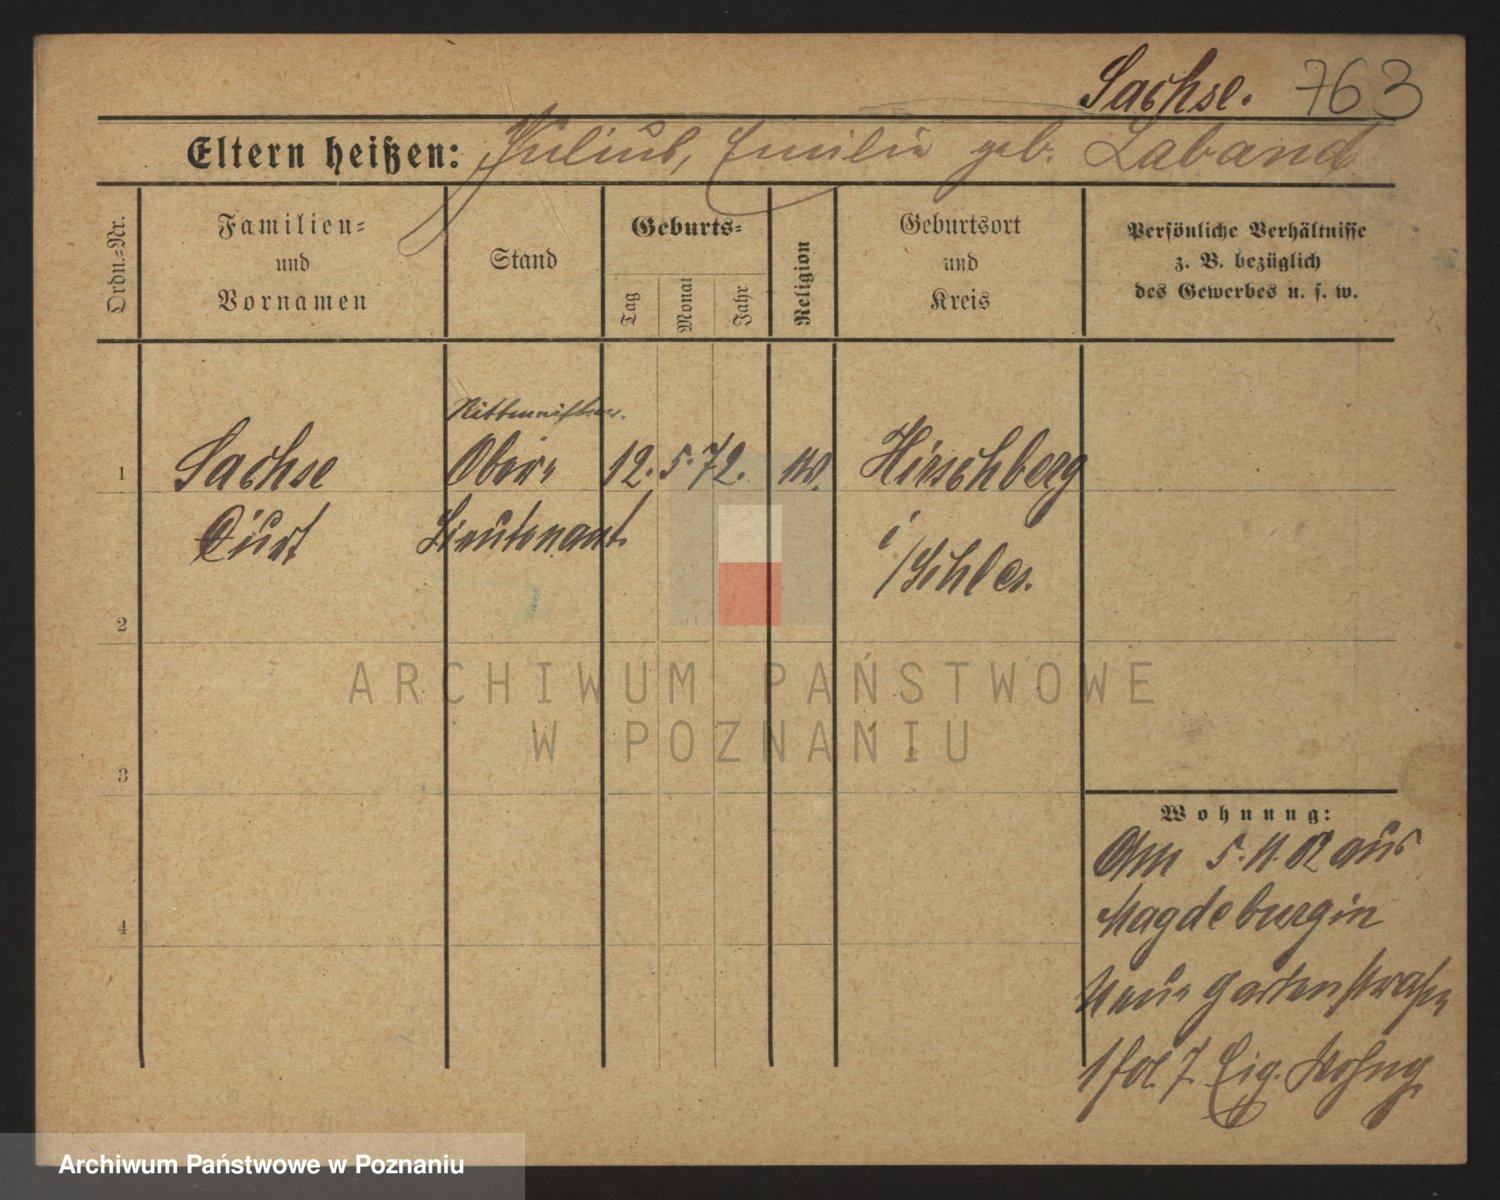 Sachse. 763
Eltern heißen: Julius, Emilie geb. Laband
Ordn.=Nr.
Familien=
und
Vornamen
Stand
Geburts=
Tag
Monat
Jahr
Religion
Geburtsort
und
Kreis
Persönliche Verhältnisse
z. B. bezüglich
des Gewerbes u. s. w.
Rittmeister.
1 Sachse Ober= 12. 5. 72. Hirschberg
Curt Lieutenant. i/Schles.
2
3
4
ARCHIWUM PAŃSTWOWE
W POZNANIU
Wohnung:
Am 5. 11. 02 aus
Magdeburg in
Neue Gartenstraße
7 Eig. Wohng
Archiwum Państwowe w Poznaniu